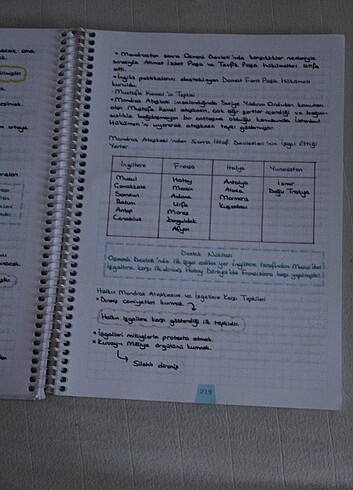 • Mondrostan sonra Osmanlı Devleti'nde karışıklıklar nedeniyle
sırasıyla Ahmet İzzet Paşa ve Tevfik Paşa hükümetleri istifa
etti.
• İngiliz politikalarını destekleyen Damat Ferit Paşa Hükümeti
kuruldu.
• Mustafa Kemal'in Tepkisi
• Mondros Ateşkesi imzalandığında Suriye Yıldırım Orduları komutanı
olan Mustafa Kemal ateşkesin, çok ağır şartlar içerdiği ve bağım-
sızlıkla bağdaşmayan bir antlaşma olduğu konusunda İstanbul
Hükümeti'ni uyararak ateşkese tepki göstermiştir.
Mondros Ateşkesi'nden Sonra İtilaf Devletleri'nin İşgal Ettiği
Yerler
İngiltere Fransa İtalya Yunanistan
Musul Hatay Antalya İzmir
Çanakkale Mersin Alanya Doğu Trakya
Samsun Adana Marmaris
Batum Urfa Kuşadası
Antep Maraş
Zonguldak
Afyon
Destek Noktası
Osmanlı Devleti'nde ilk işgal edilen yer İngiltere tarafından Musul'dur.
İşgallere karşı ilk direniş Hatay Dörtyol'da Fransızlara karşı yapılmıştır.
Halkın Mondros Ateşkesine ve İşgallere Karşı Tepkileri
• Direniş cemiyetleri kurmak.
Halkın işgallere karşı gösterdiği ilk tepkidir.
• İşgalleri mitinglerle protesto etmek.
• Kuvayı Milliye örgütünü kurmak.
Silahlı direniş
219